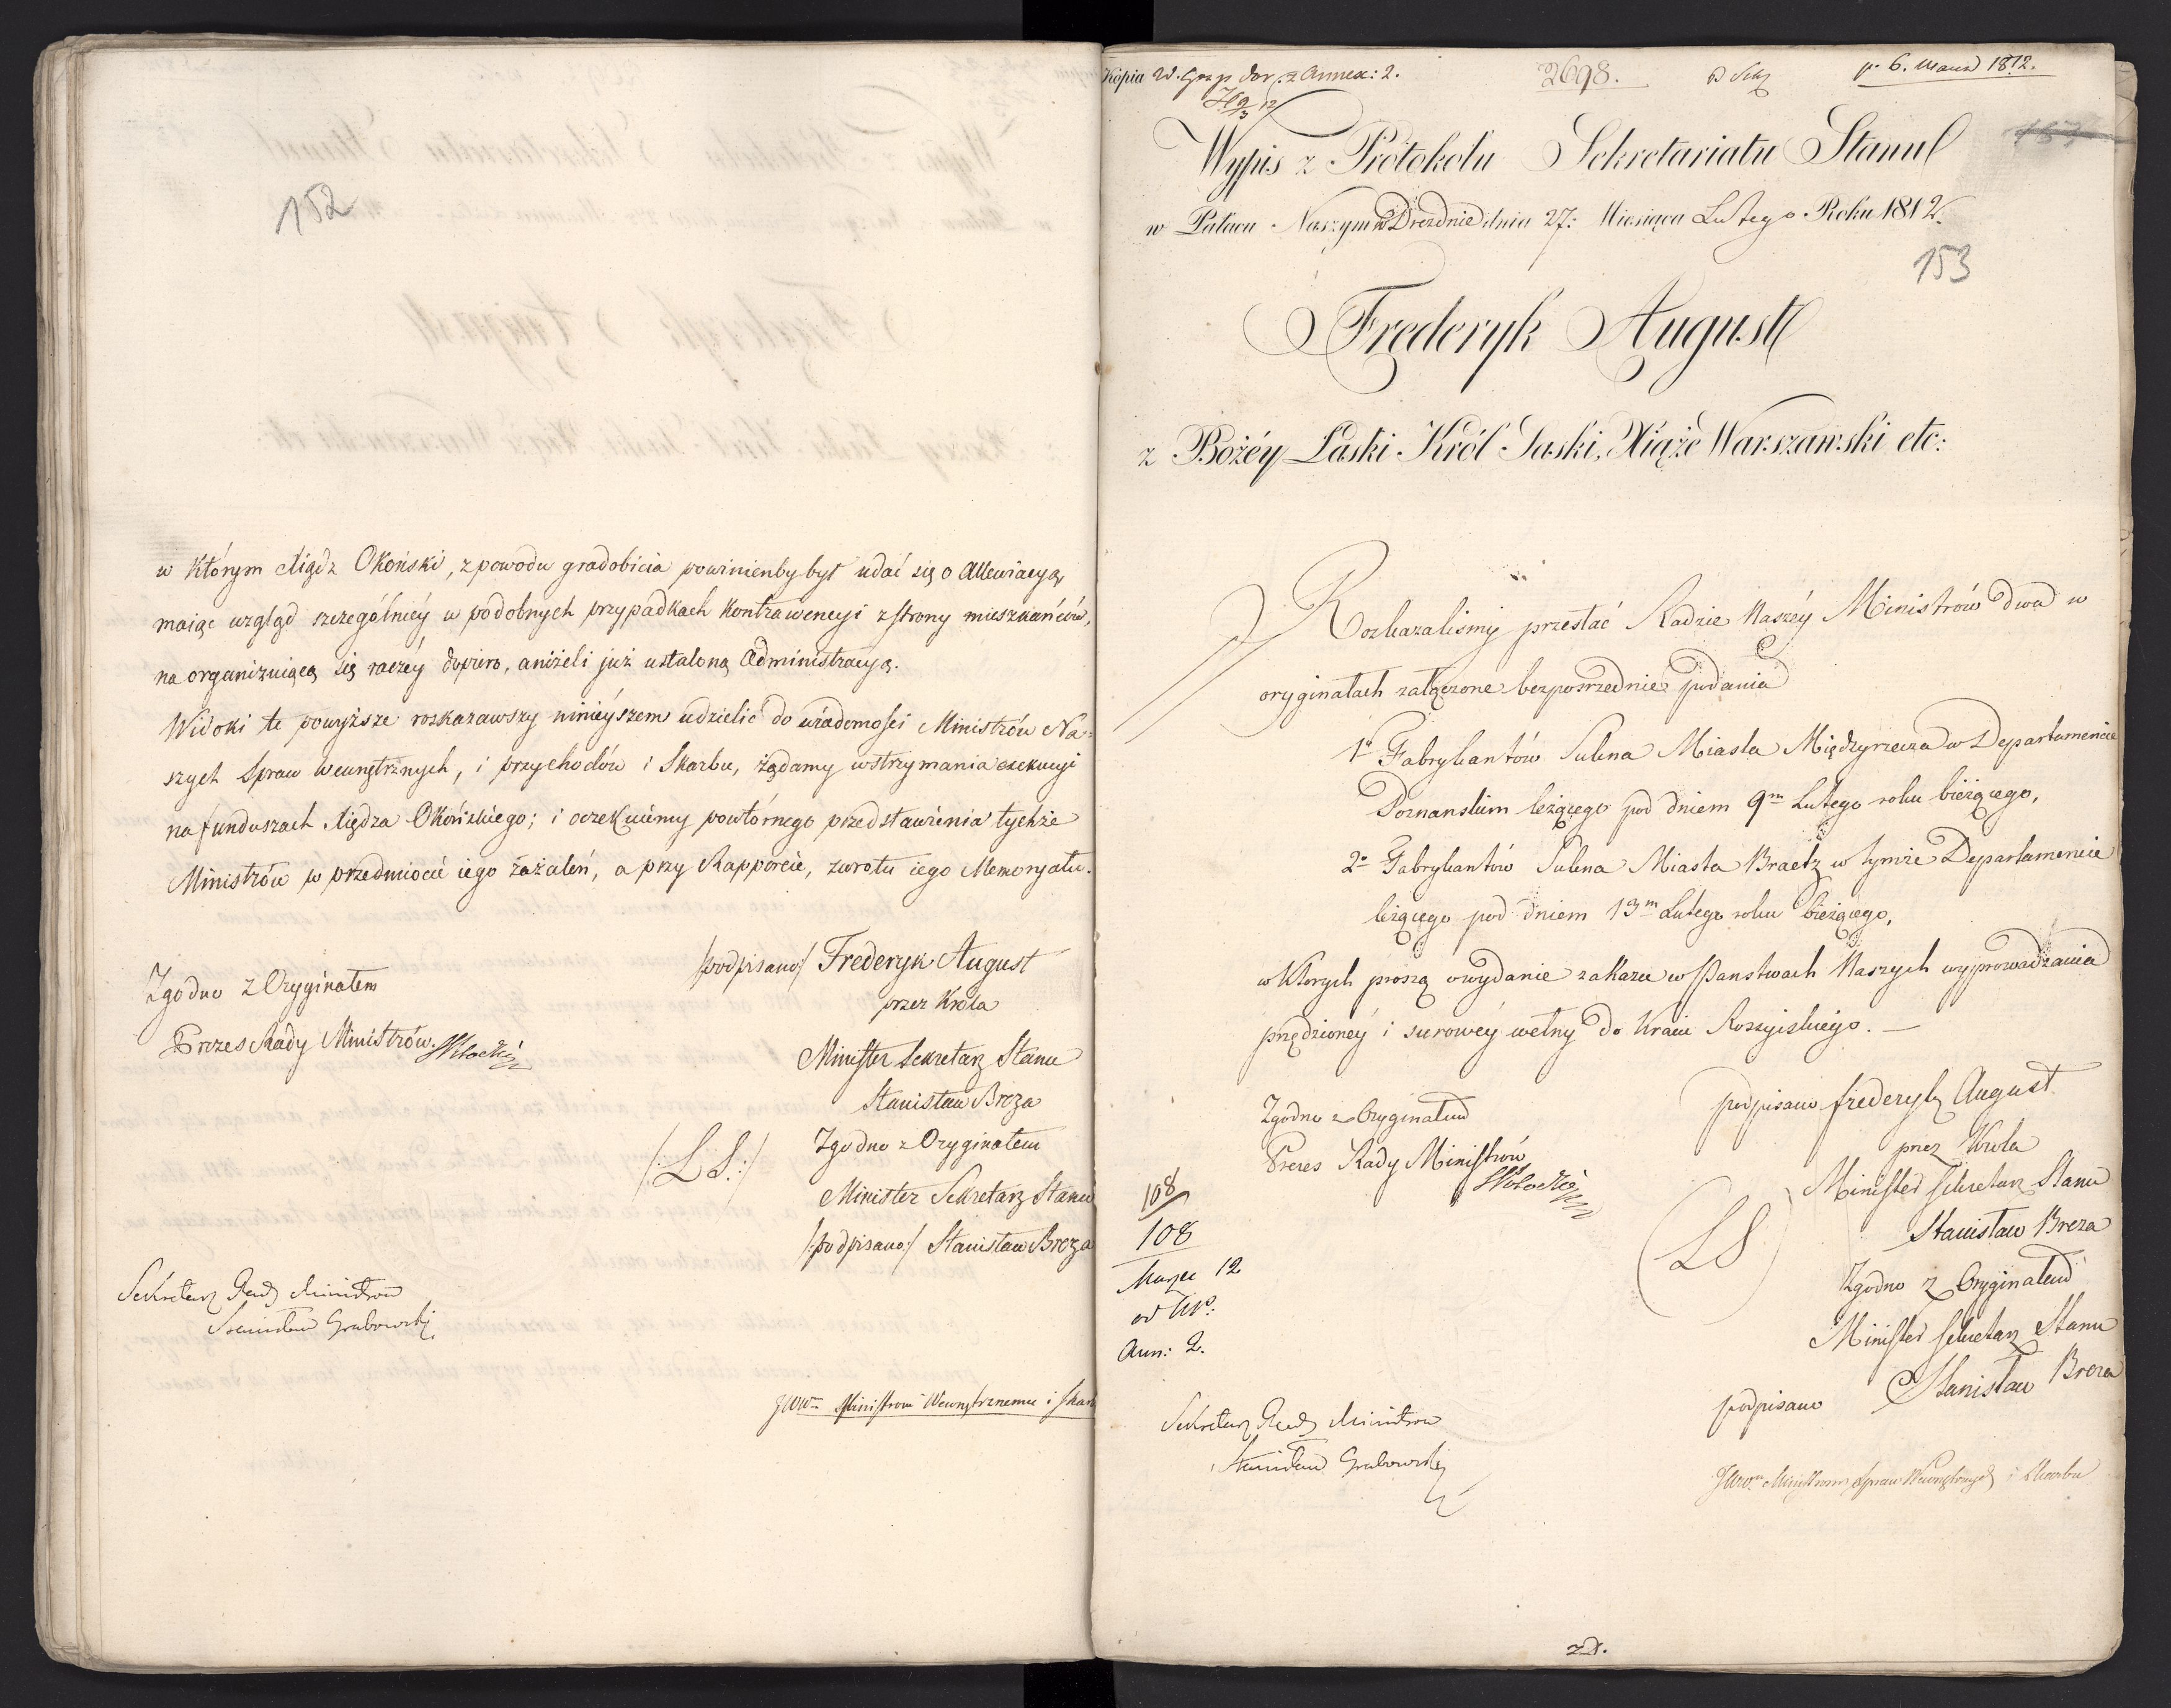 152
w którym Xiądz Okoński, z powodu gradobicia powinienby był udać się o Allewiacyą,
maiąc wzgląd szczególniéy w podobnych przypadkach Kontrawencyi z strony mieszkańców,
na organizuiącą się raczéy dopiero, aniżeli już ustaloną Administracyą.
Widoki te powyższe rozkazawszy ninieyszem udzielić do wiadomości Ministrów Na-
szych Spraw Wewnętrznych, i przychodów i Skarbu, żądamy wstrzymania exekucyi
na funduszach Xiędza Okońskiego; i oczekuiemy powtórnego przedstawienia tychże
Ministrów w przedmiocie iego zażaleń, a przy Rapporcie, zwrotu iego Memoryału.
/podpisano/ Frederyk August
przez Króla
Minister Sekretarz Stanu
Stanisław Breza
Zgodno z Oryginałem
Prezes Rady Ministrów
/:L.S.:/
Zgodno z Oryginałem
Minister Sekretarz Stanu
/podpisano/ Stanisław Breza
Sekretarz Rady Ministrów
Stanisław Grabowski
JWWm Ministrom Wewnętrznemu i Skar
Kopia z Annex: 2.
2698.
6. Marca 1812.
Wypis z Protokołu Sekretariatu Stanu
157
w Pałacu Naszym w Dreznie dnia 27: Miesiąca Lutego Roku 1812.
153
Frederyk August
z Bożéy Łaski Król Saski, Xiąże Warszawski etc:
Rozkazaliśmy przesłać Radzie Naszéy Ministrów dwa w
oryginałach załączone bezpośrednie podania
1o Fabrykantów Sukna Miasta Międzyrzecza w Departamencie
Poznanskim leżącego pod dniem 9m Lutego roku bieżącego,
2o Fabrykantów Sukna Miasta Braetz w tymże Departamencie
leżącego pod dniem 13m Lutego roku bieżącego,
w których proszą o wydanie zakazu w Państwach Naszych wyprowadzania
przędzioney i surowey wełny do Kraiu Rossyiskiego. —
podpisano Frederyk August
przez Krola
Minister Sekretarz Stanu
Stanisław Breza
Zgodno z Oryginałem
Prezes Rady Ministrów
(LS)
Zgodno z Oryginałem
Minister Sekretarz Stanu
podpisano Stanisław Breza
108
108
Marzec 12
Ann: 2.
Sekretarz Rady Ministrów
Stanisław Grabowski
JWWm Ministrom Spraw Wewnętrznych i Skarbu